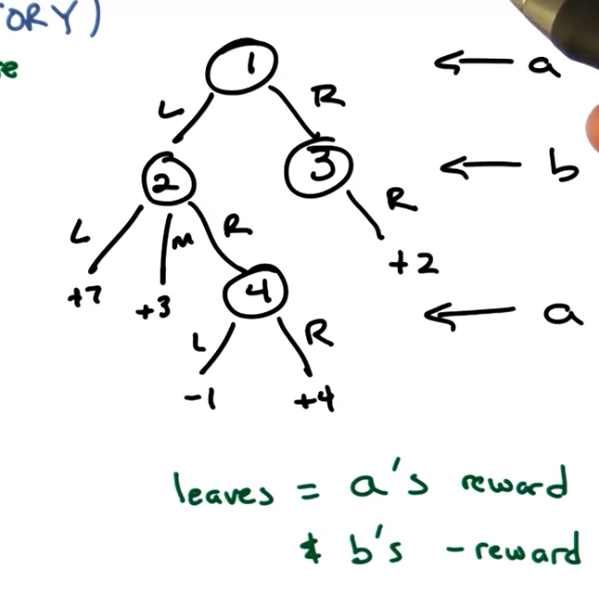 ORY)
e
1 ← a
L R
2 3 ← b
L M R R
+7 +3 4 +2
← a
L R
-1 +4
leaves = a's reward
& b's -reward